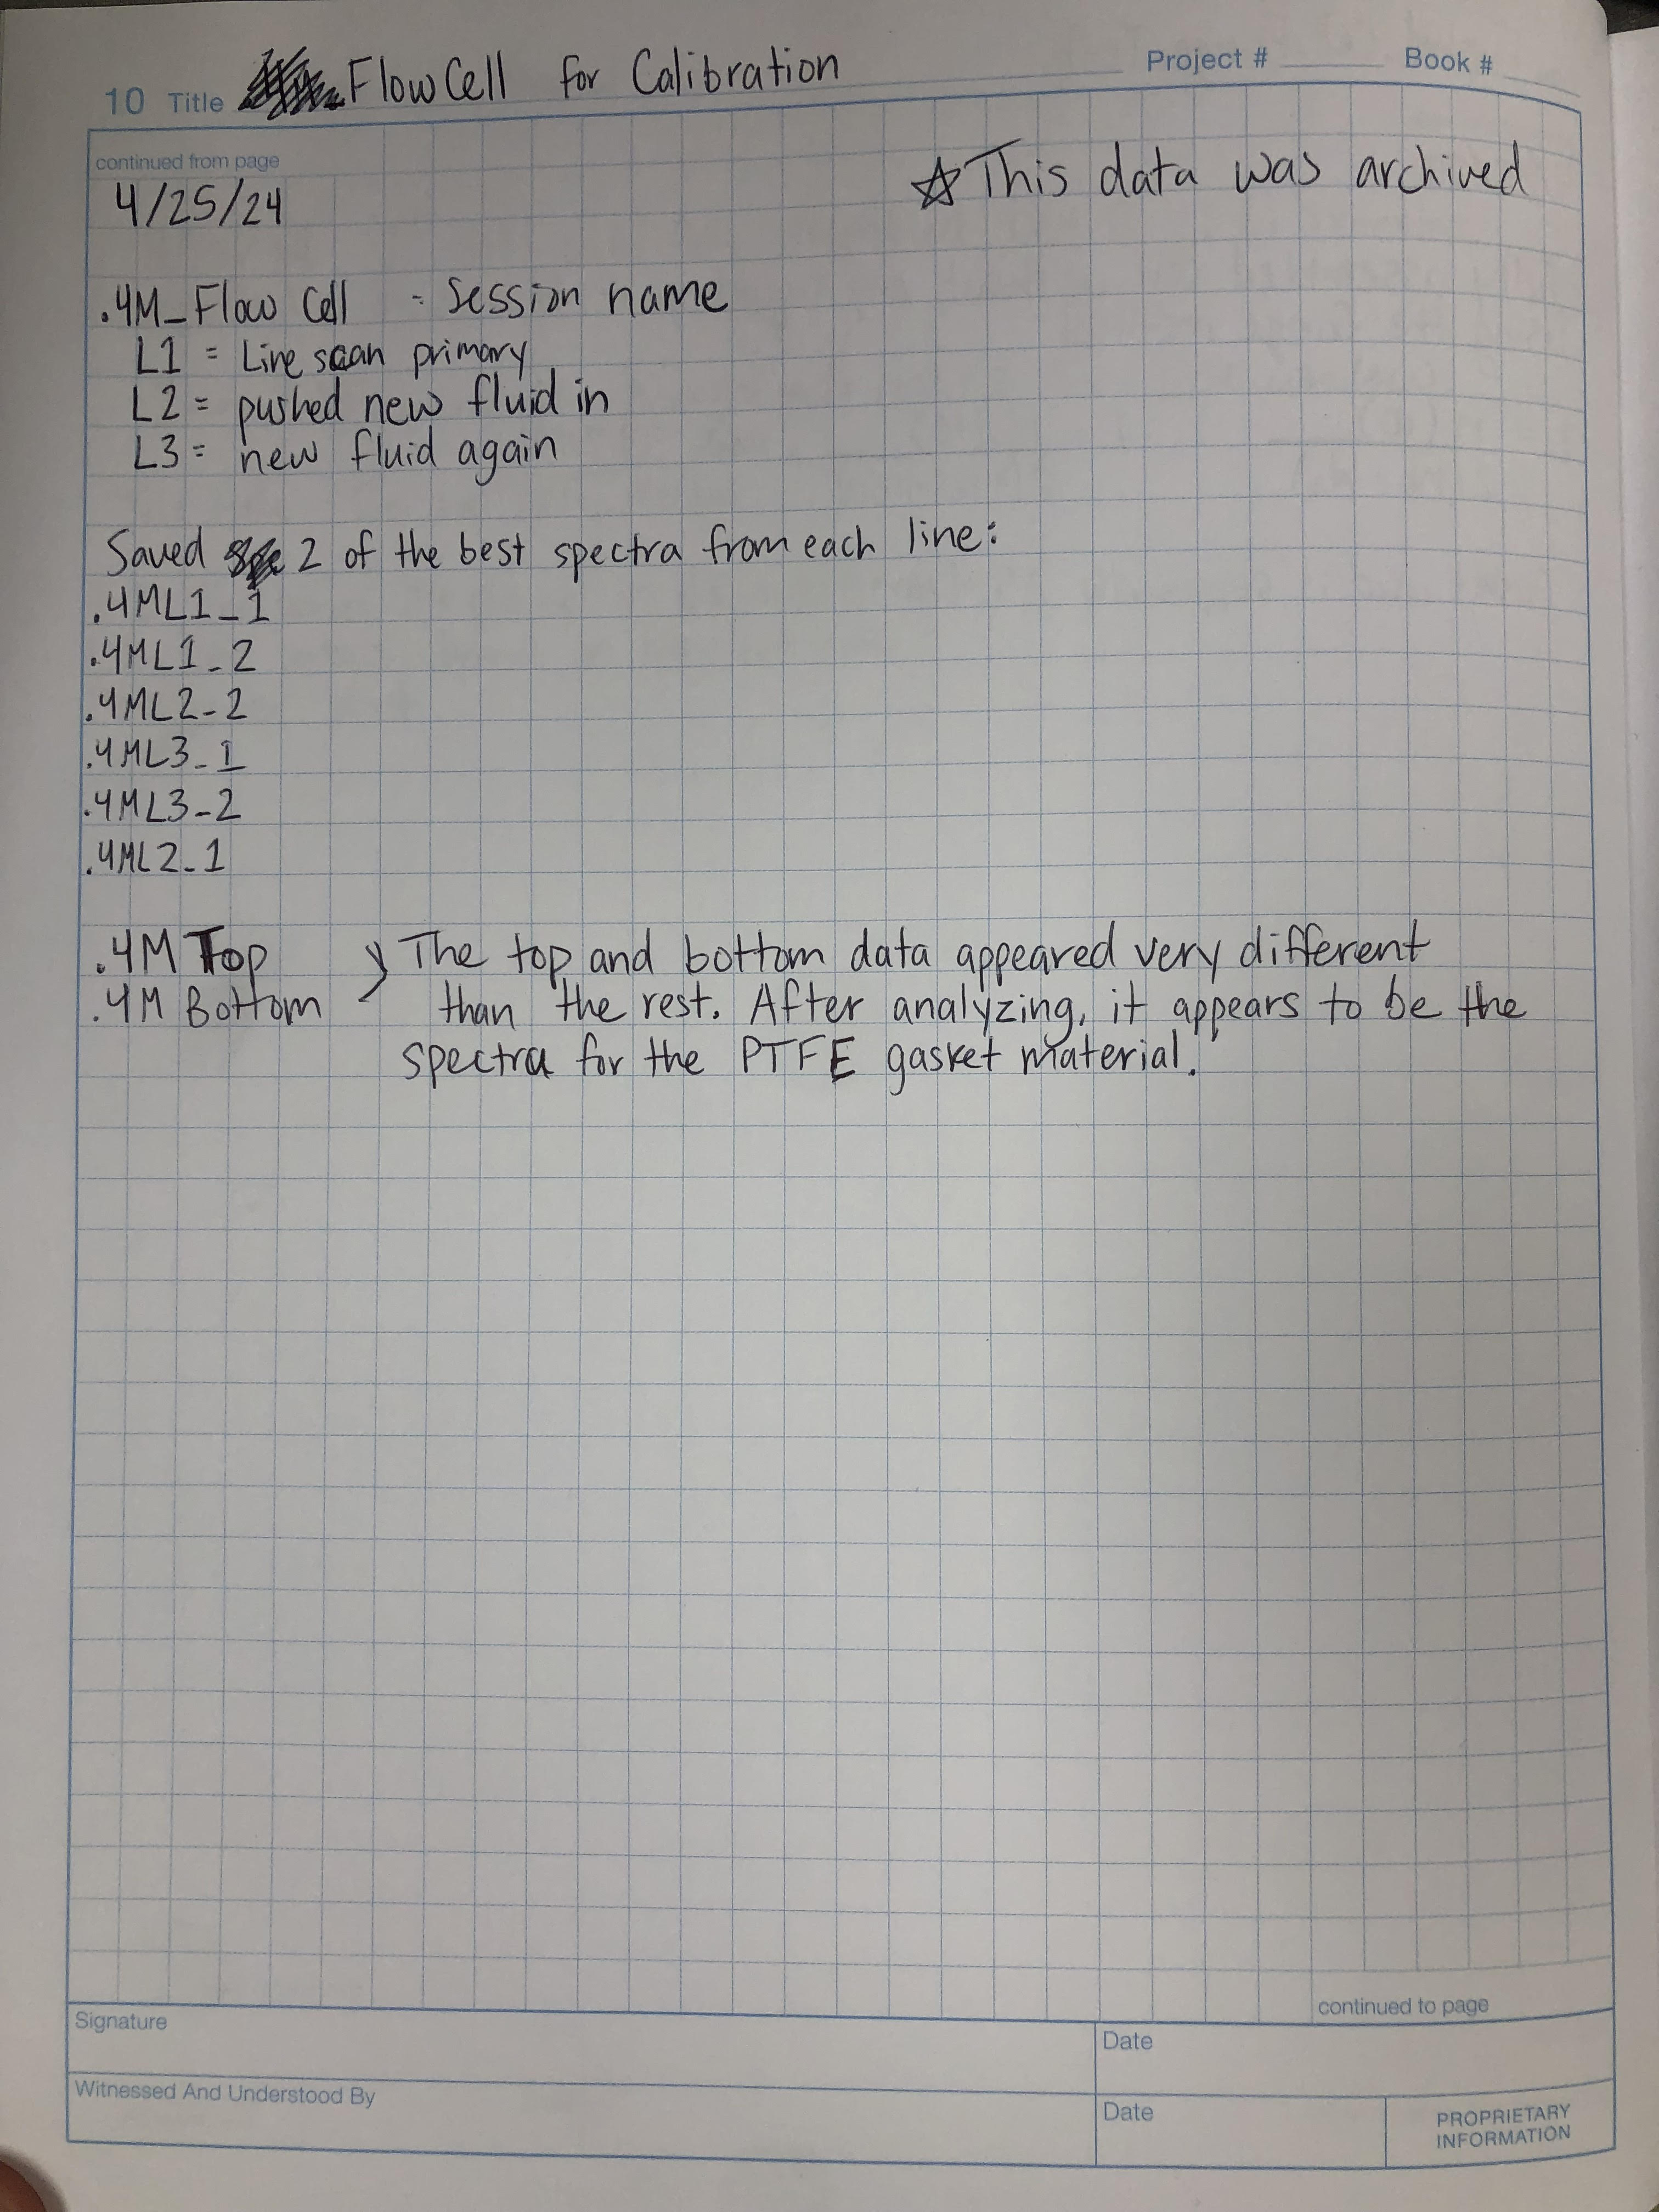 10 Title Flow Cell for Calibration Project # Book #
continued from page
4/25/24
☆ This data was archived
.4M_Flow Cell - Session name
L1 = Line scan primary
L2 = pushed new fluid in
L3 = new fluid again
Saved 2 of the best spectra from each line:
.4ML1_1
.4ML1_2
.4ML2_2
.4ML3_1
.4ML3_2
.4ML2_1
.4M Top } The top and bottom data appeared very different
.4M Bottom than the rest. After analyzing, it appears to be the
spectra for the PTFE gasket material.
continued to page
Signature Date
Witnessed And Understood By Date
PROPRIETARY
INFORMATION